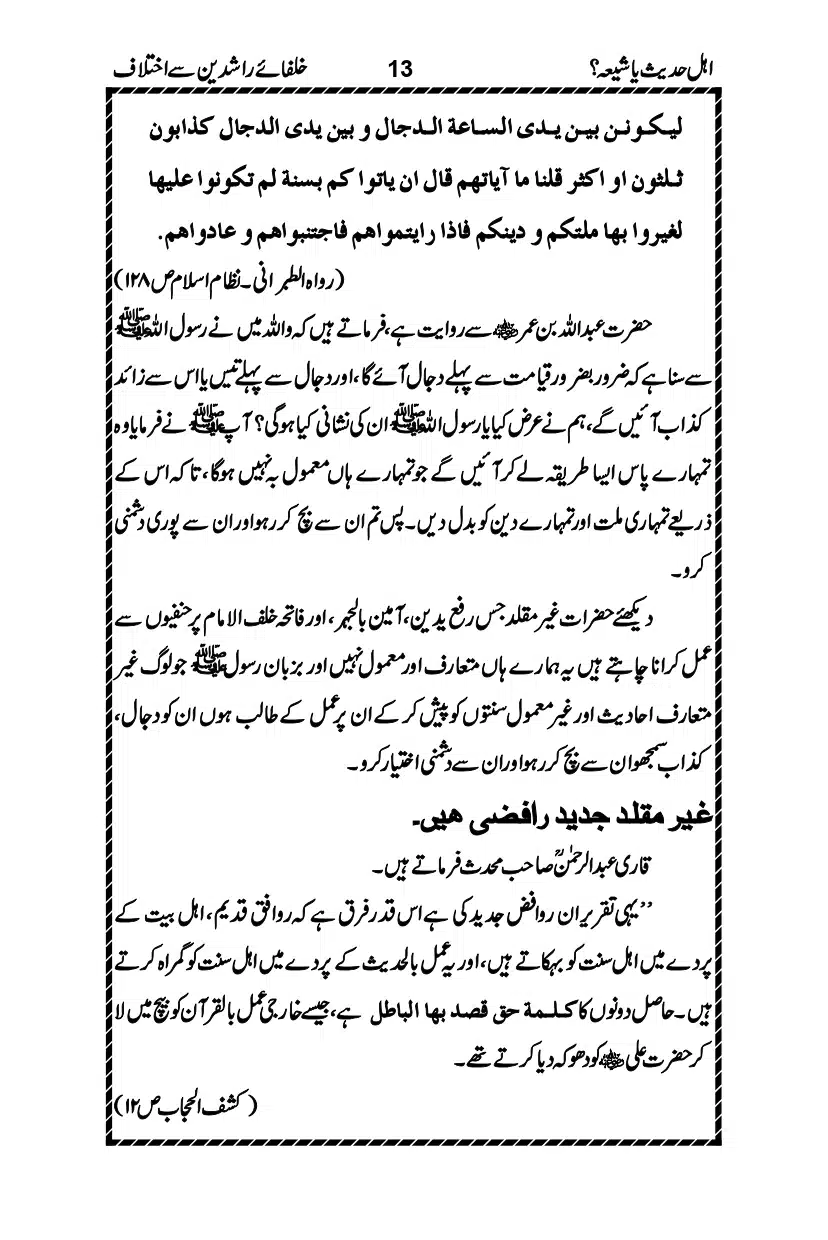 اہل حدیث یا شیعہ؟ 13 خلفائے راشدین سے اختلاف
لیکونن بین یدی الساعة الدجال و بین یدی الدجال کذابون
ثلثون او اکثر قلنا ما آیاتهم قال ان یاتوا کم بسنة لم تکونوا علیها
لغیروا بها ملتکم و دینکم فاذا رایتمواهم فاجتنبواهم و عادواهم.
(رواہ الطبرانی۔ نظام اسلام ص ۱۲۸)
حضرت عبداللہ بن عمر ؓ سے روایت ہے، فرماتے ہیں کہ واللہ میں نے رسول اللہ ﷺ
سے سنا ہے کہ ضرور بضرور قیامت سے پہلے دجال آئے گا، اور دجال سے پہلے تیس یا اس سے زائد
کذاب آئیں گے، ہم نے عرض کیا یا رسول اللہ ﷺ ان کی نشانی کیا ہوگی؟ آپ ﷺ نے فرمایا وہ
تمہارے پاس ایسا طریقہ لے کر آئیں گے جو تمہارے ہاں معمول بہ نہیں ہوگا، تاکہ اس کے
ذریعے تمہاری ملت اور تمہارے دین کو بدل دیں۔ پس تم ان سے بچ کر رہو اور ان سے پوری دشمنی
کرو۔
دیکھئے حضرات غیر مقلد جس رفع یدین، آمین بالجہر، اور فاتحہ خلف الامام پر حنفیوں سے
عمل کرانا چاہتے ہیں یہ ہمارے ہاں متعارف اور معمول نہیں اور بزبان رسول ﷺ جو لوگ غیر
متعارف احادیث اور غیر معمول سنتوں کو پیش کر کے ان پر عمل کے طالب ہوں ان کو دجال،
کذاب سمجھو ان سے بچ کر رہو اور ان سے دشمنی اختیار کرو۔
غیر مقلد جدید رافضی ہیں۔
قاری عبدالرحمٰنؒ صاحب محدث فرماتے ہیں۔
’’یہی تقریر ان روافض جدید کی ہے اس قدر فرق ہے کہ روافق قدیم، اہل بیت کے
پردے میں اہل سنت کو بہکاتے ہیں، اور یہ عمل بالحدیث کے پردے میں اہل سنت کو گمراہ کرتے
ہیں۔ حاصل دونوں کا کلمة حق قصد بها الباطل ہے، جیسے خارجی عمل بالقرآن کو بیچ میں لا
کر حضرت علی ؓ کو دھوکہ دیا کرتے تھے۔
(کشف الحجاب ص ۱۲)